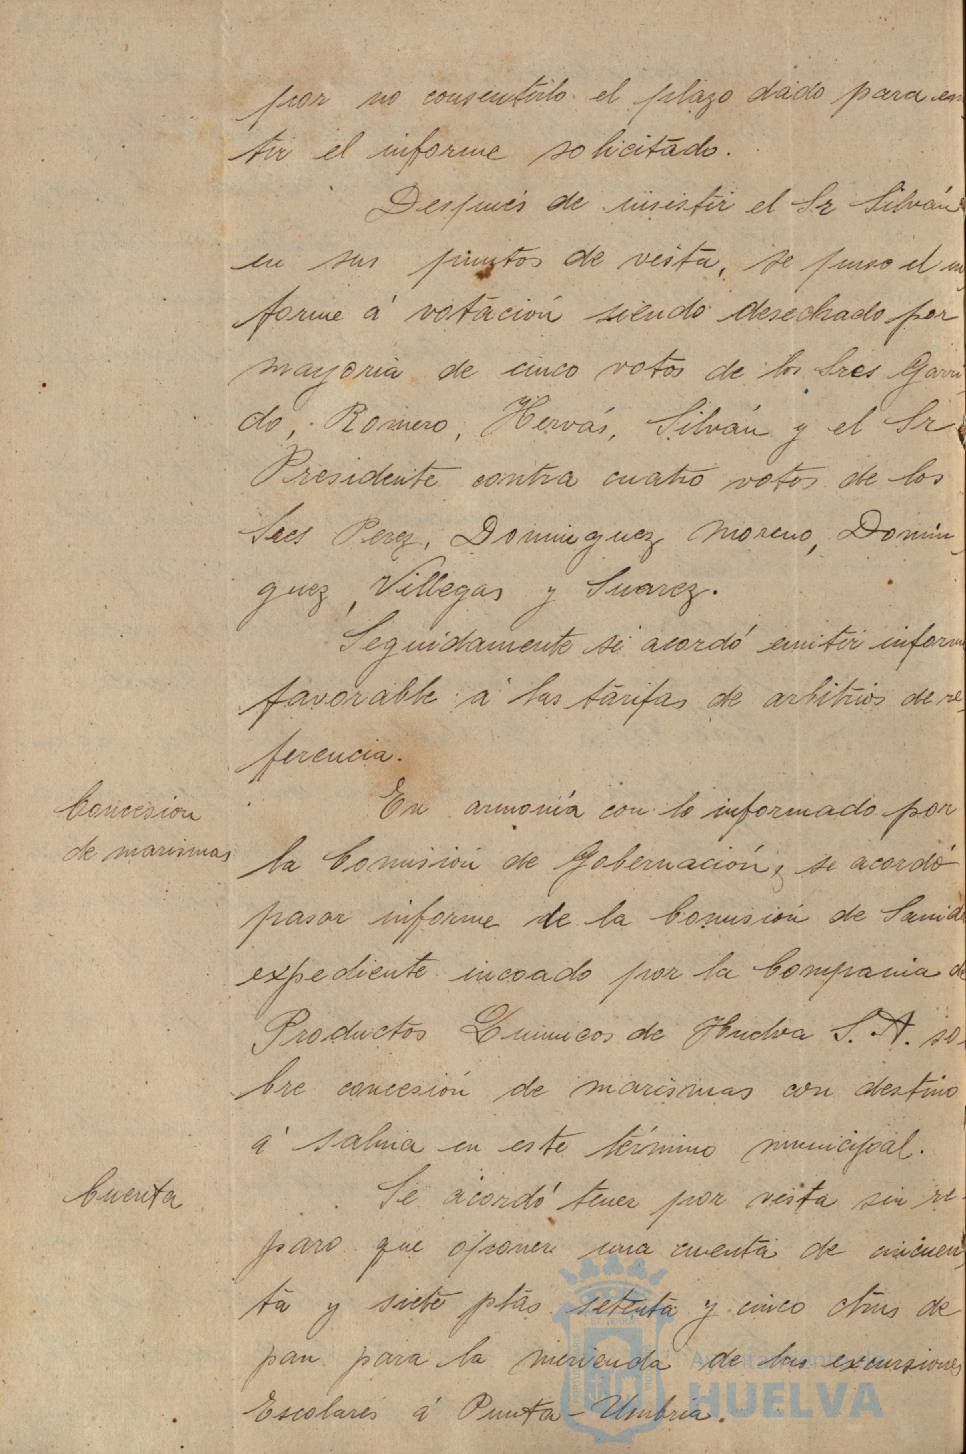 por no consentirlo el plazo dado para emi
tir el informe solicitado.
Después de insistir el Sr Silván
en sus puntos de vista, se puso el in
forme á votación siendo desechado por
mayoria de cinco votos de los Sres Garri
do, Romero, Hervás, Silván y el Sr
Presidente contra cuatro votos de los
Sres Perez, Dominguez Moreno, Domin
guez Villegas y Suarez.
Seguidamente se acordó emitir informe
favorable á las tarifas de arbitrios de re-
ferencia.
Concesion
de marismas
En armonía con lo informado por
la Comisión de Gobernación, se acordó
pasar informe de la Comisión de Sanidad
expediente incoado por la Compania de
Productos Quimicos de Huelva S. A. so-
bre concesión de marismas con destino
á salina en este término municipal.
Cuenta
Se acordó tener por vista sin re-
paro que oponer una cuenta de cincuen
ta y siete ptas setenta y cinco ctms de
pan para la merienda de las excursiones
Escolares á Punta-Umbria.
Ayuntamiento de
HUELVA